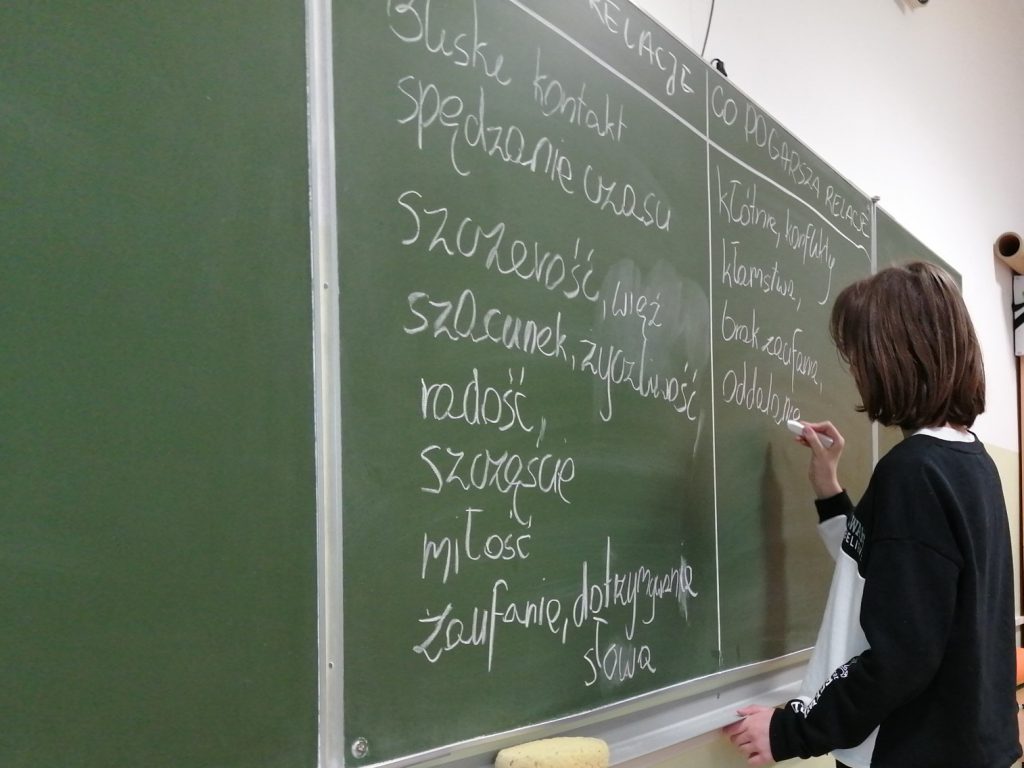 RELACJE
Bliski kontakt
spędzanie czasu
szczerość, więź
szacunek, życzliwość,
radość,
szczęście
miłość
zaufanie, dotrzymywanie
słowa
CO POGARSZA RELACJE
kłótnie, konflikty
kłamstwa,
brak zaufania,
oddalanie